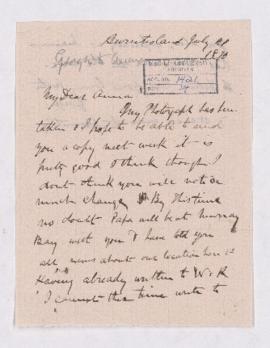 Burntisland, July 21
My Dear Anna
My Photograph has been
taken & I hope to be able to send
you a copy next week it is
pretty good I think though I
dont think you will notice
much change. By this time
no doubt Papa will be at Murray
Bay with you I have told you
all news about our location here
Having already written to W & R
I cannot this time write to